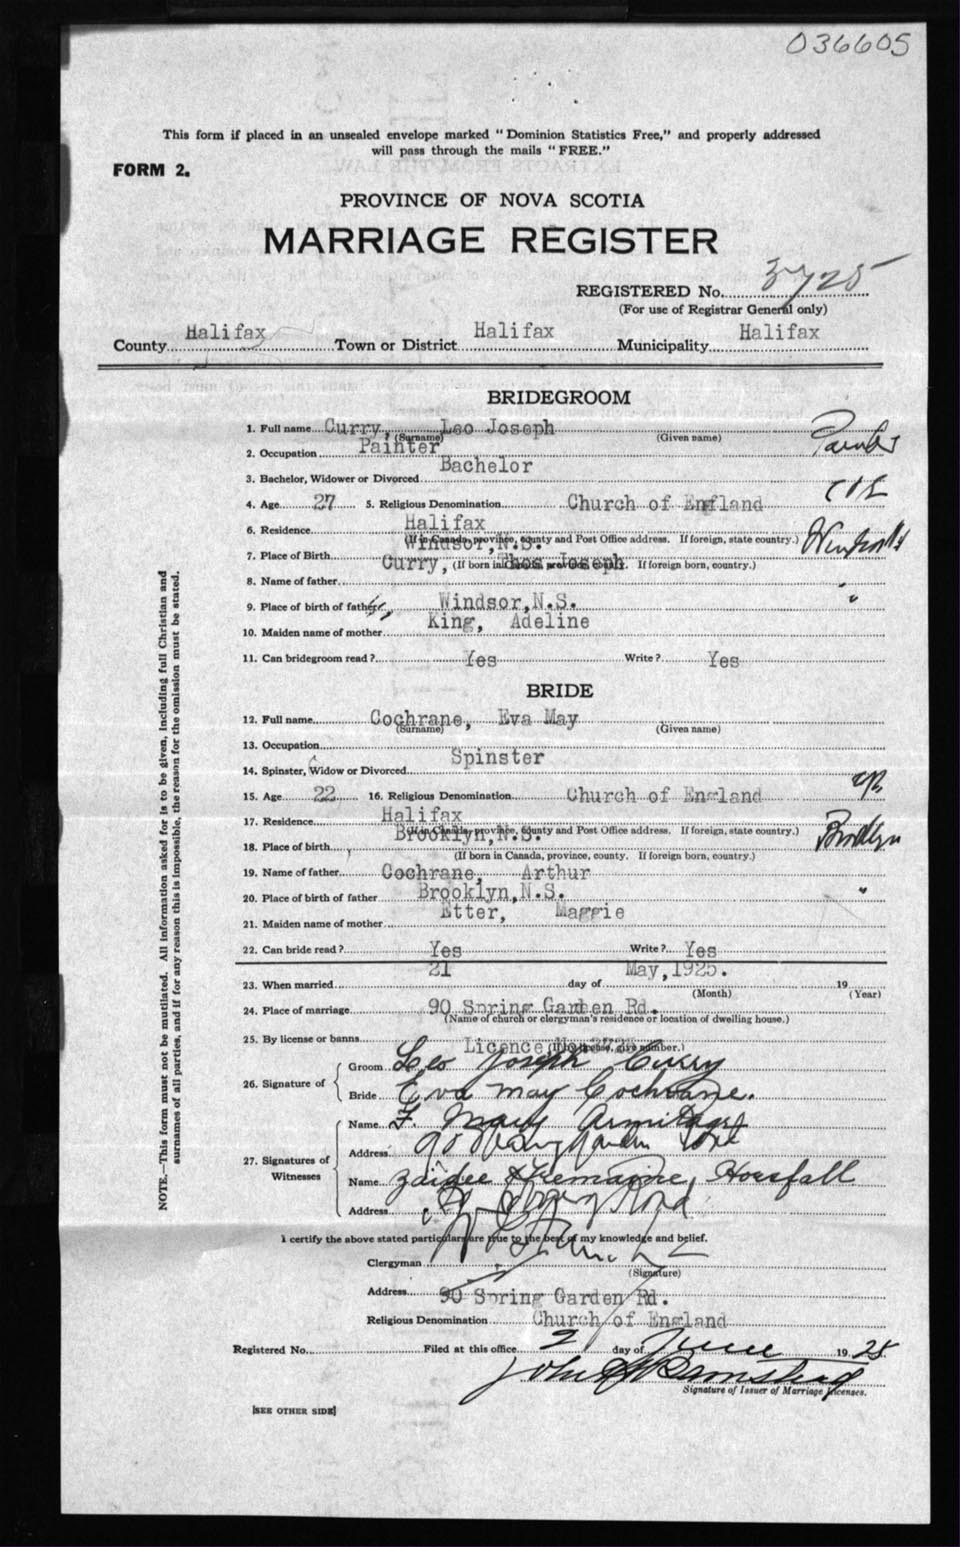 036605
This form if placed in an unsealed envelope marked "Dominion Statistics Free," and properly addressed
will pass through the mails "FREE."
FORM 2.
PROVINCE OF NOVA SCOTIA
MARRIAGE REGISTER
REGISTERED No. 3725
(For use of Registrar General only)
County Halifax Town or District Halifax Municipality Halifax
BRIDEGROOM
1. Full name Curry, Leo Joseph
(Surname) (Given name)
2. Occupation Painter
3. Bachelor, Widower or Divorced Bachelor
4. Age 27 5. Religious Denomination Church of England
6. Residence Halifax
(If in Canada, province, county and Post Office address. If foreign, state country.)
7. Place of Birth Windsor, N.S.
(If born in Canada, province, county. If foreign born, country.)
8. Name of father Curry, Thos Joseph
9. Place of birth of father Windsor, N.S. "
10. Maiden name of mother King, Adeline
11. Can bridegroom read? Yes Write? Yes
BRIDE
12. Full name Cochrane, Eva May
(Surname) (Given name)
13. Occupation
14. Spinster, Widow or Divorced Spinster
15. Age 22 16. Religious Denomination Church of England
17. Residence Halifax
(If in Canada, province, county and Post Office address. If foreign, state country.)
18. Place of birth Brooklyn, N.S. Brooklyn
(If born in Canada, province, county. If foreign born, country.)
19. Name of father Cochrane, Arthur
20. Place of birth of father Brooklyn, N.S. "
21. Maiden name of mother Etter, Maggie
22. Can bride read? Yes Write? Yes
23. When married 21 day of May, 1925. 19
(Month) (Year)
24. Place of marriage 90 Spring Garden Rd.
(Name of church or clergyman's residence or location of dwelling house.)
25. By license or banns Licence No. 3725
(If by license, give number.)
26. Signature of
Groom Leo Joseph Curry
Bride Eva May Cochrane.
27. Signatures of Witnesses
Name F. Mary Armitage
Address 90 Spring Garden Road
Name Zaidee Horsfall
Address Road
I certify the above stated particulars are true to the best of my knowledge and belief.
Clergyman
(Signature)
Address 90 Spring Garden Rd.
Religious Denomination Church of England
Registered No. Filed at this office 2 day of June 1925
John
Signature of Issuer of Marriage Licenses.
[SEE OTHER SIDE]
NOTE.—This form must not be mutilated. All information asked for is to be given, including full Christian and
surnames of all parties, and if for any reason this is impossible, the reason for the omission must be stated.